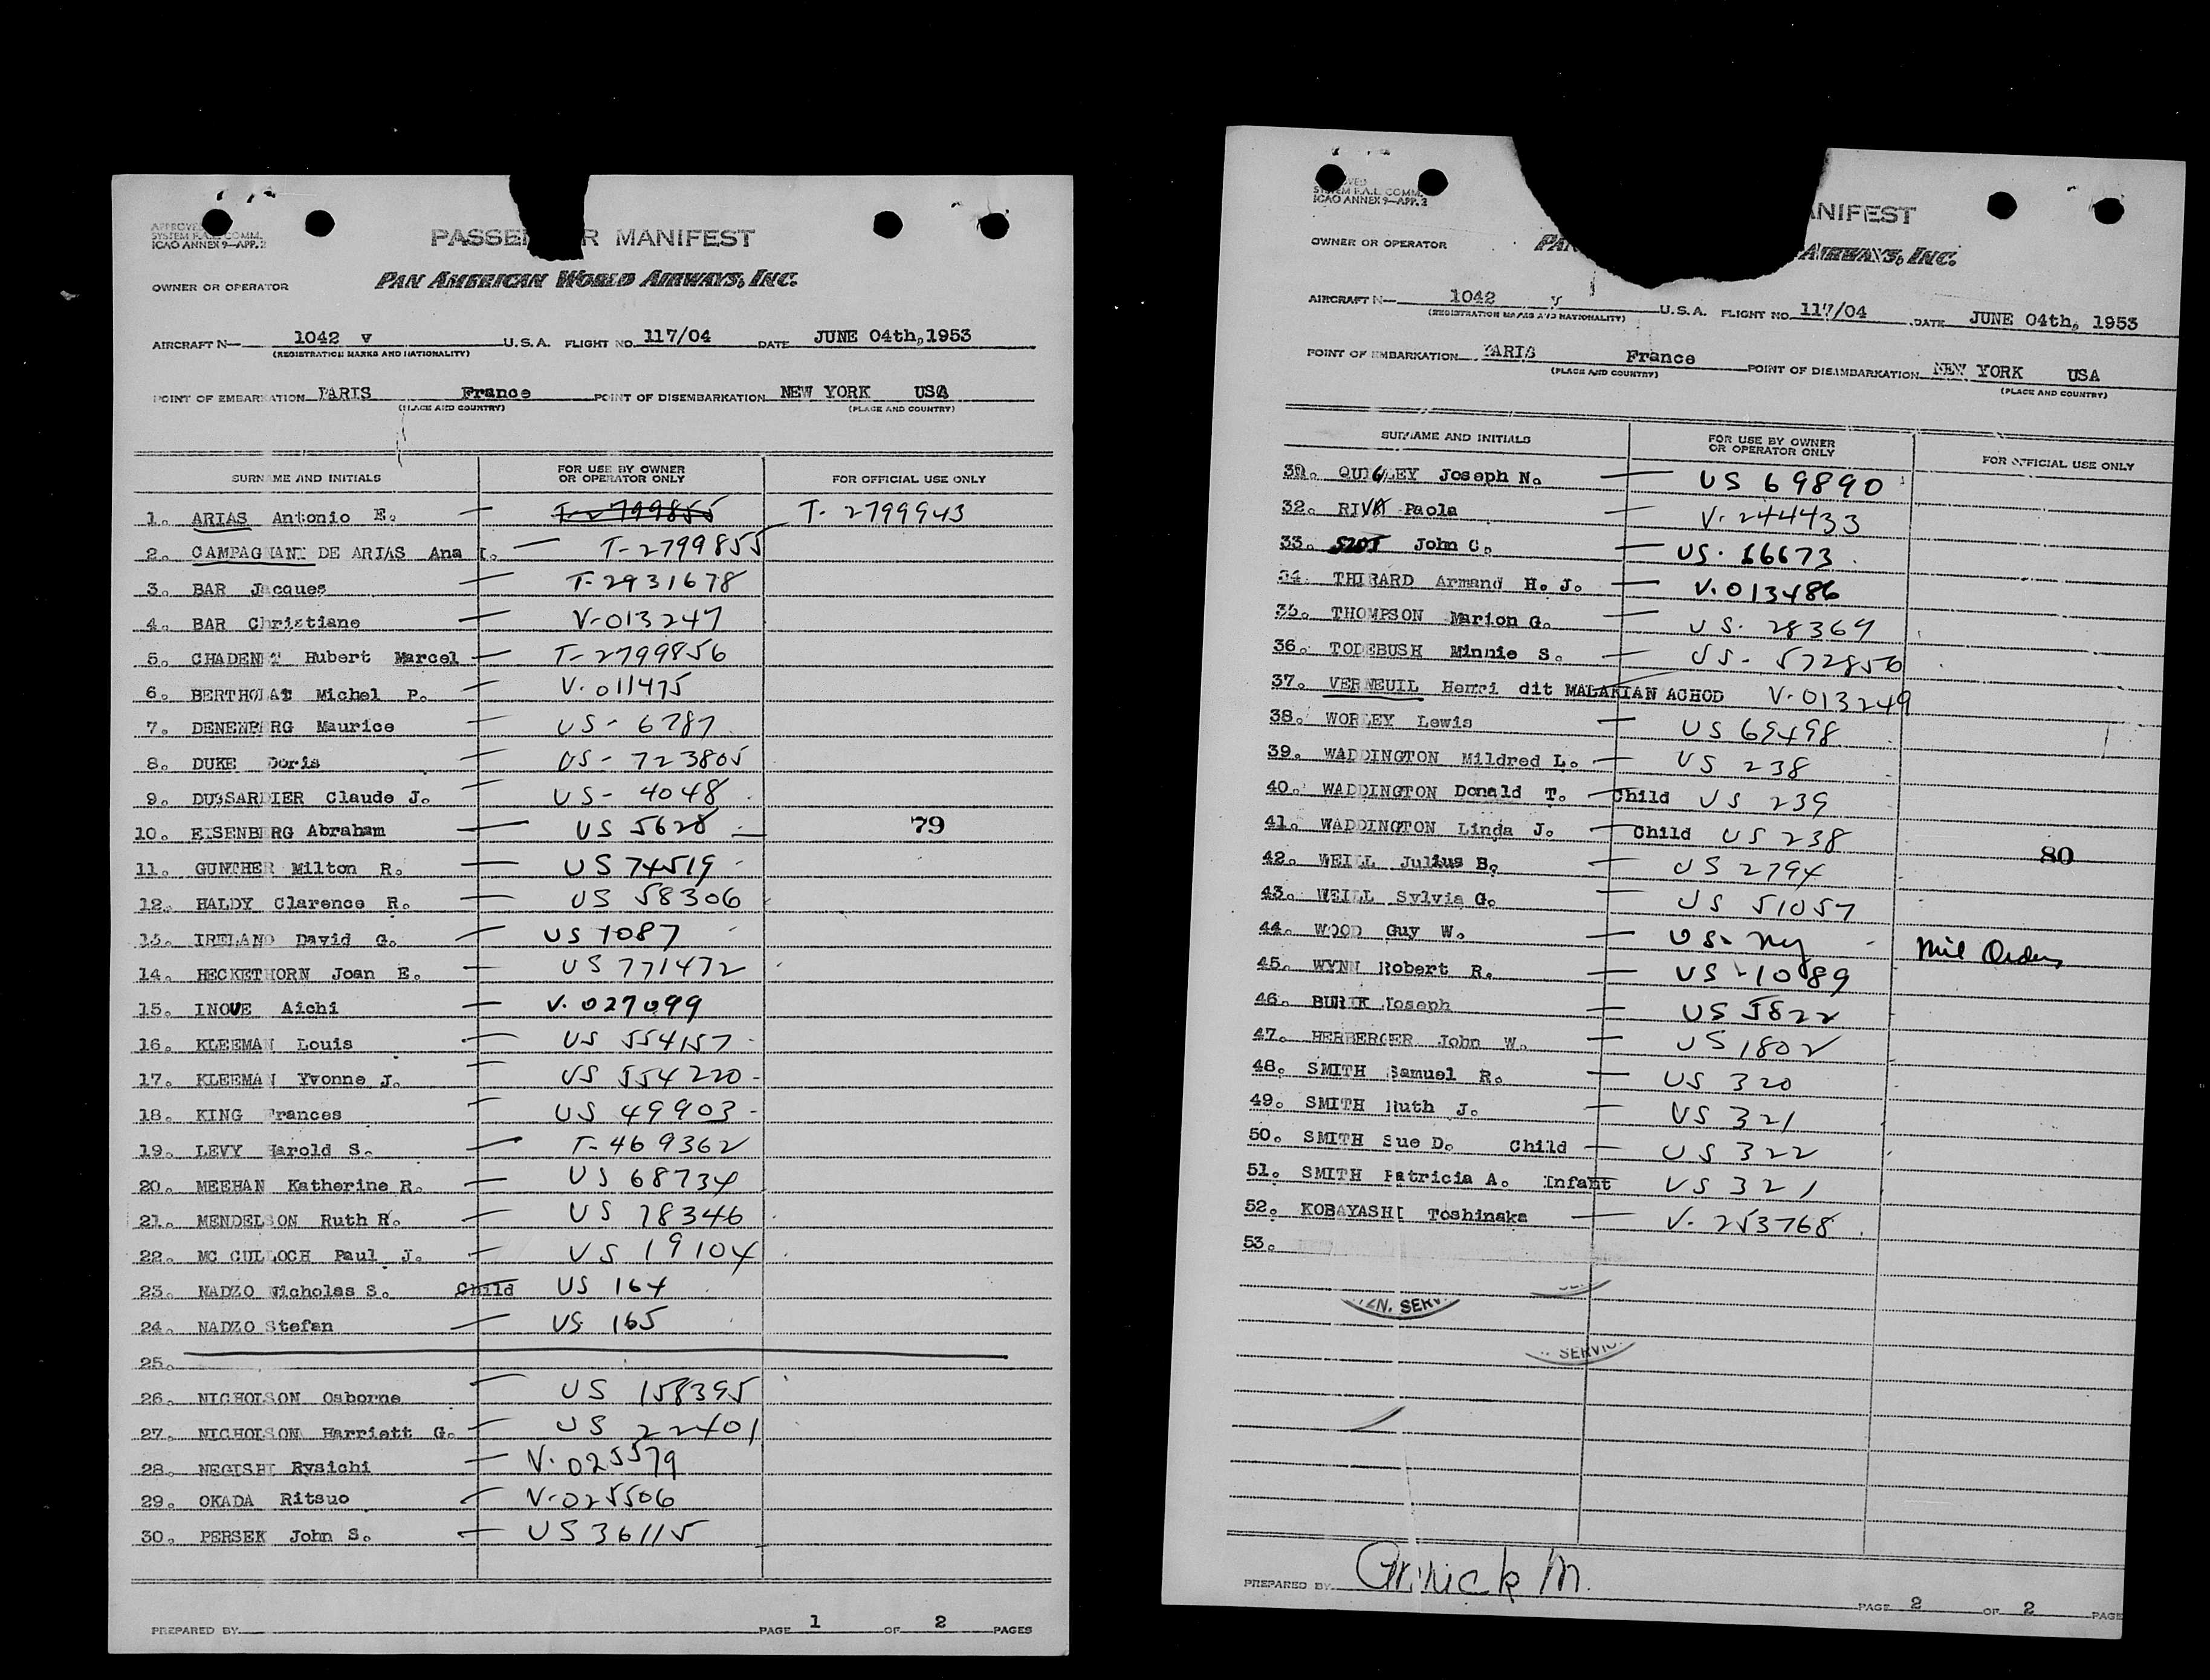 APPROVED
SYSTEM F.A.L. COMM.
ICAO ANNEX 9—APP. 2
PASSEN R MANIFEST
OWNER OR OPERATOR PAN AMERICAN WORLD AIRWAYS, INC.
AIRCRAFT N— 1042 v U.S.A. FLIGHT NO. 117/04 DATE JUNE 04th, 1953
(REGISTRATION MARKS AND NATIONALITY)
POINT OF EMBARKATION PARIS France POINT OF DISEMBARKATION NEW YORK USA
(PLACE AND COUNTRY) (PLACE AND COUNTRY)
SURNAME AND INITIALS FOR USE BY OWNER OR OPERATOR ONLY FOR OFFICIAL USE ONLY
1. ARIAS Antonio E. — T-2799855 T-2799943
2. CAMPAGNANI DE ARIAS Ana I. — T-2799855
3. BAR Jacques — T-2931678
4. BAR Christiane — V-013247
5. CHADENET Hubert Marcel — T-2799856
6. BERTHOLAT Michel P. — V-011475
7. DENENBERG Maurice — US-6787
8. DUKE Doris — US-723805
9. DUSSARDIER Claude J. — US-4048
10. EISENBERG Abraham — US 5628 — 79
11. GUNTHER Milton R. — US 74519
12. HALDY Clarence R. — US 58306
13. IRELAND David G. — US 1087
14. HECKETHORN Joan E. — US 771472
15. INOUE Aichi — V. 027099
16. KLEEMAN Louis — US 554157
17. KLEEMAN Yvonne J. — US 554220
18. KING Frances — US 49903
19. LEVY Harold S. — T-469362
20. MEEHAN Katherine R. — US 68734
21. MENDELSON Ruth R. — US 78346
22. MC CULLOCH Paul J. — US 19104
23. NADZO Nicholas S. Child US 164
24. NADZO Stefan — US 165
25.
26. NICHOLSON Osborne — US 158395
27. NICHOLSON Harriett G. — US 22401
28. NEGISHI Rysichi — V. 025579
29. OKADA Ritsuo — V-025506
30. PERSEK John S. — US 36115
PREPARED BY PAGE 1 OF 2 PAGES
SYSTEM F.A.L. COMM.
ICAO ANNEX 9—APP. 2
ANIFEST
OWNER OR OPERATOR PAN AIRWAYS, INC.
AIRCRAFT N— 1042 v U.S.A. FLIGHT NO. 117/04 DATE JUNE 04th, 1953
(REGISTRATION MARKS AND NATIONALITY)
POINT OF EMBARKATION PARIS France POINT OF DISEMBARKATION NEW YORK USA
(PLACE AND COUNTRY) (PLACE AND COUNTRY)
SURNAME AND INITIALS FOR USE BY OWNER OR OPERATOR ONLY FOR OFFICIAL USE ONLY
31. QUIGLEY Joseph N. — US 69890
32. RIVA Paola — V. 244433
33. SLOT John C. — US. 16673
34. THIRARD Armand H. J. — V. 013486
35. THOMPSON Marion G. — US. 28369
36. TODEBUSH Minnie S. — US- 572850
37. VERNEUIL Henri dit MALAKIAN ACHOD V-013249
38. WORLEY Lewis — US 69498
39. WADDINGTON Mildred L. — US 238
40. WADDINGTON Donald T. — Child US 239
41. WADDINGTON Linda J. — Child US 238 80
42. WEILL Julius B. — US 2794
43. WEILL Sylvia G. — US 51057
44. WOOD Guy W. — US- Mil Orders
45. WYNN Robert R. — US-1089
46. BURIK Joseph — US 5822
47. HERBERGER John W. — US 1802
48. SMITH Samuel R. — US 320
49. SMITH Ruth J. — US 321
50. SMITH Sue D. Child — US 322
51. SMITH Patricia A. Infant US 321
52. KOBAYASHI Toshinaka — V. 253768
53.
ZN. SERV.
SERVIC
PREPARED BY
PAGE 2 OF 2 PAGE